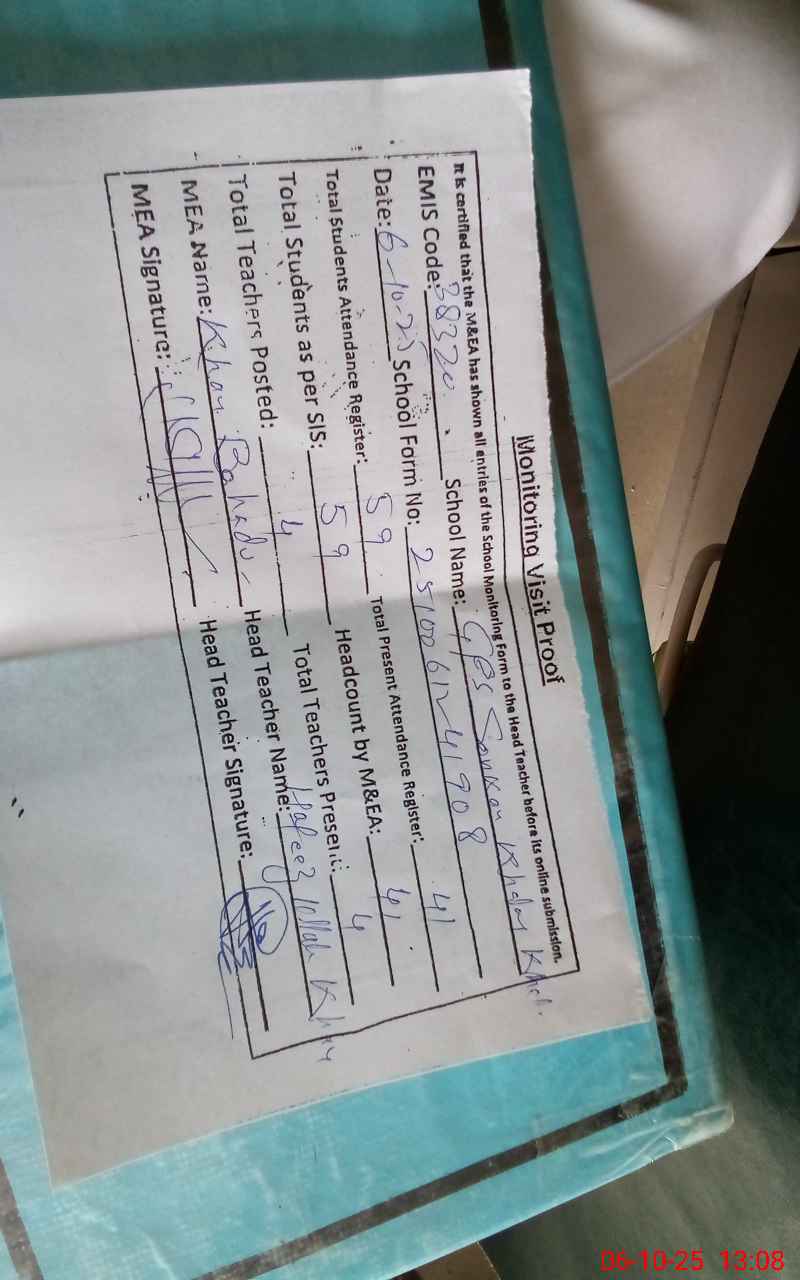 Monitoring Visit Proof
It is certified that the M&EA has shown all entries of the School Monitoring Form to the Head Teacher before its online submission.
EMIS Code: 38320 School Name: GPS Khel
Date: 6-10-25 School Form No: 2510061241908
Total Students Attendance Register: 59 Total Present Attendance Register: 41
Total Students as per SIS: 59 Headcount by M&EA: 41
Total Teachers Posted: 4 Total Teachers Present: 4
MEA Name: Khan Bahadur Head Teacher Name: Hafeez Ullah Khan
MEA Signature: Head Teacher Signature:
06-10-25 13:08